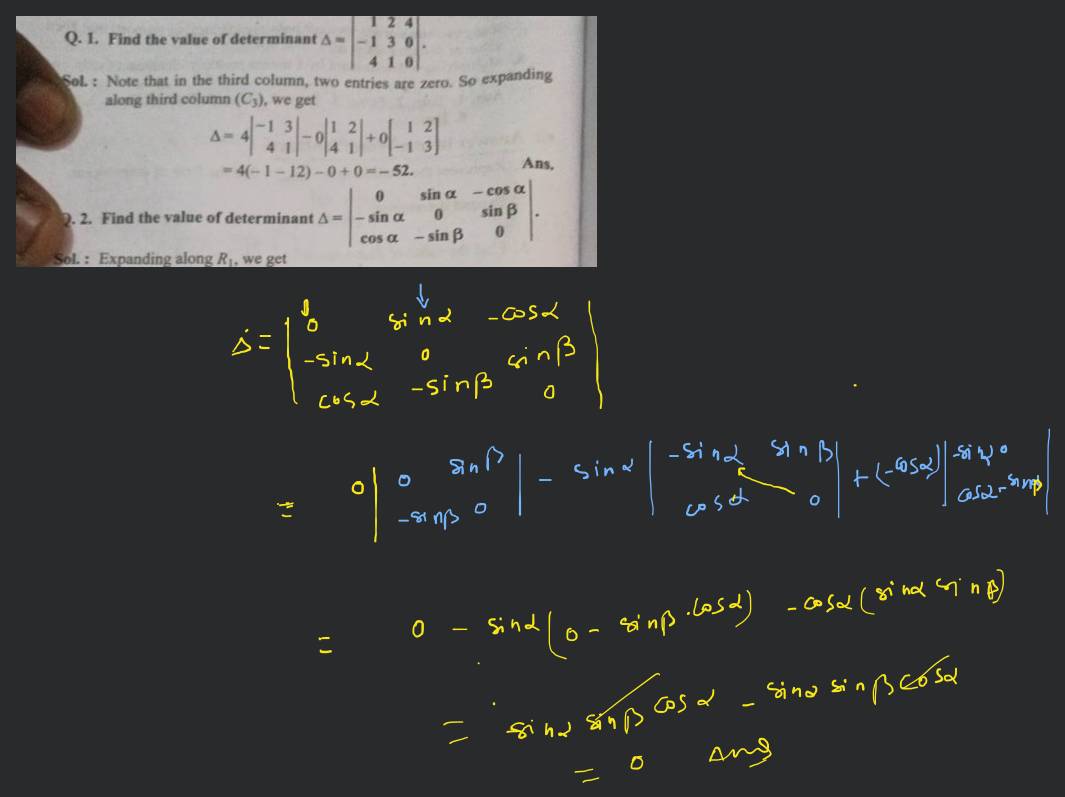 Q. 1. Find the value of determinant Δ = | 1 2 4 |
| -1 3 0 | .
| 4 1 0 |
Sol. : Note that in the third column, two entries are zero. So expanding
along third column (C₃), we get
Δ = 4 | -1 3 | - 0 | 1 2 | + 0 [ 1 2 ]
| 4 1 | | 4 1 | [ -1 3 ]
= 4(- 1 - 12) - 0 + 0 = - 52. Ans.
Q. 2. Find the value of determinant Δ = | 0 sin α - cos α |
| - sin α 0 sin β | .
| cos α - sin β 0 |
Sol. : Expanding along R₁, we get
Δ = | 0 sinα -cosα |
| -sinα 0 sinβ |
| cosα -sinβ 0 |
= 0 | 0 sinβ | - sinα | -sinα sinβ | + (-cosα) | -sinα 0 |
| -sinβ 0 | | cosα 0 | | cosα -sinβ |
= 0 - sinα (0 - sinβ . cosα) - cosα (sinα sinβ)
= sinα sinβ cosα - sinα sinβ cosα
= 0 Ans